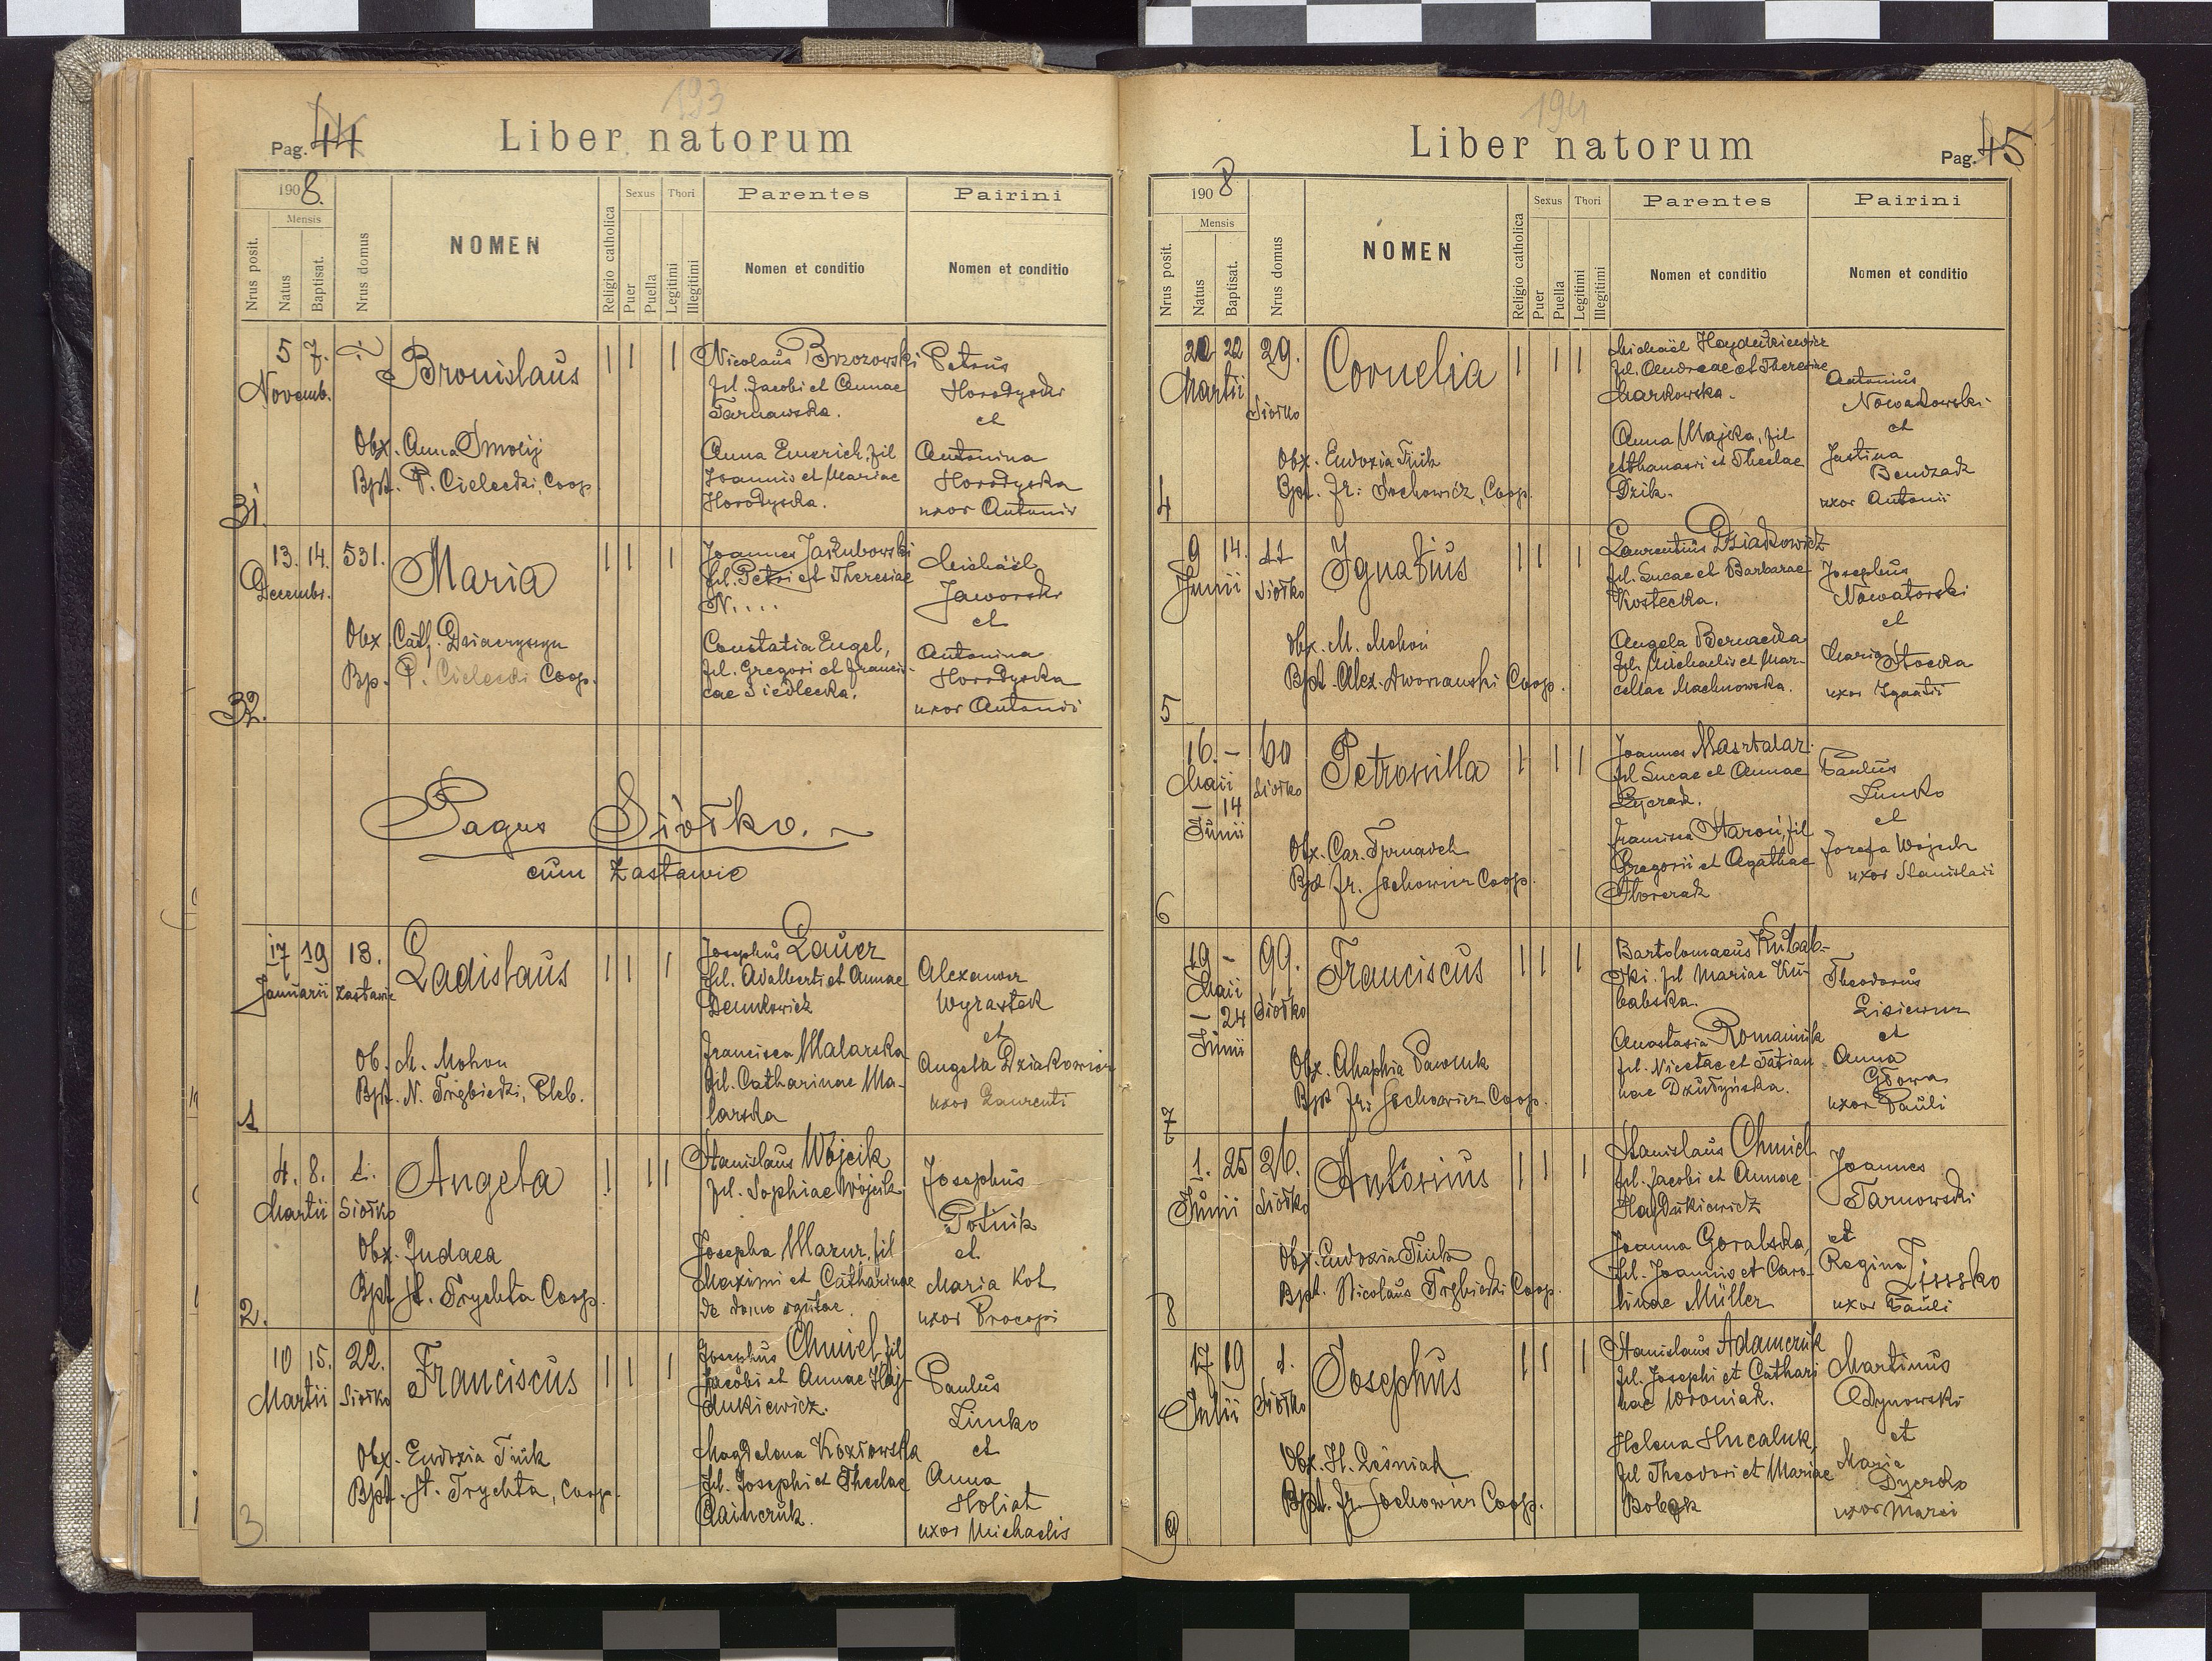 193
Pag. 44
Liber natorum
1908.
Nrus posit.
Mensis
Natus
Baptisat.
Nrus domus
NOMEN
Religio catholica
Sexus
Puer
Puella
Thori
Legitimi
Illegitimi
Parentes
Nomen et conditio
Pairini
Nomen et conditio
31.
5 7.
Novemb.
Bronislaus
1 1 1
Obx. Anna
Bpt. P. Cielecki, Coop.
Nicolaus Brzozowski
fil. Jacobi et Annae
Tarnawska.
Anna Emerich, fil
Joannis et Mariae
Horodyska.
Petrus
Horodyski
et
Antonina
Horodyska
uxor Antonii
32.
13. 14. 531.
Decembr.
Maria
1 1 1
Obx. Cath.
Bp. P. Cielecki Coop.
Joannes Jakubowski
fil. Petri et Theresiae
N. . . .
Constatia Engel,
fil. Gregori et Francis-
cae Siedlecka.
Michaël
Jaworski
et
Antonina
Horodyska
uxor Antonii
Pagus Siółko.
cum Zastawie
1
17 19 13.
Januarii Zastawie
Ladislaus
1 1 1
Ob. M. Mohon
Bpt. N. Trębiecki, Pleb.
Josephus Lauer
fil. Adalberti et Annae
Demkowicz
Francisca Malarska
fil. Catharinae Ma-
larska
Alexander
Wyrastek
et
Angela Dziakowicz
uxor Laurenti
2.
4. 8. 1.
Martii Siółko
Angela
1 1 1
Obx. Judaea
Bpt. St. Trychta Coop.
Stanislaus Wójcik
fil. Sophiae Wójcik
Josepha Mazur, fil
Maximi et Catharinae
de domo
Josephus
Potnik
et
Maria Kot
uxor Procopi
3
10 15. 22.
Martii Siółko
Franciscus
1 1 1
Obx. Eudoxia Tiuk
Bpt. St. Trychta, Coop.
Josephus Chmiel, fil
Jacobi et Annae Haj-
dukiewicz.
Magdelena Kozłowska
fil. Josephi et Theclae
Paulus
Lunko
et
Anna
Holiat
uxor Michaelis
194
Liber natorum
Pag. 45
1908
Nrus posit.
Mensis
Natus
Baptisat.
Nrus domus
NOMEN
Religio catholica
Sexus
Puer
Puella
Thori
Legitimi
Illegitimi
Parentes
Nomen et conditio
Pairini
Nomen et conditio
4
20 22 29.
Martii Siółko
Cornelia
1 1 1
Obx. Eudoxia Tiuk
Bpt. Fr. Sochowicz, Coop.
Michaël Hajdukiewicz
fil. Andreae et Theresiae
Markowska.
Anna Majka, fil
Athanasii et Theclae
Dzik.
Antonius
Nowakowski
et
Justina
Bendzak
uxor Antonii
5
9 14. 11
Junii Siółko
Ignatius
1 1 1
Obx. M. Mohon
Bpt. Alex. Dworzanski Coop.
Laurentius Dziadkowicz
fil. Lucae et Barbarae
Kostecka.
Angela Bernacka
fil. Michaelis et Mar-
cellae Machnowska.
Josephus
Nowatorski
et
Maria Stocka
uxor Ignatii
6
16. – 60
Maii Siółko
– 14
Junii
Petronilla
1 1 1
Obx. Car.
Bpt Fr. Sochowicz Coop.
Joannes Masztalar.
fil Lucae et Annae
Francisca Staroń, fil
Gregorii et Agathae
Paulus
Lunko
et
Jozefa Wojcik
uxor Stanislaii
7
19 – 99.
Maii Siółko
– 24
Junii
Franciscus
1 1 1
Obx. Ahaphia Pawluk
Bpt Fr. Sochowicz Coop.
Bartolomaeus Kubab-
ski. fil Mariae Ku-
babska.
Anastasia Romaniuk
fil. Nicetae et Tatian
nae Dżułyńska.
Theodorus
Lisiewicz
et
Anna
Głowa
uxor Pauli
8
1. 25 26.
Junii Siółko
Antonius
1 1 1
Obx. Eudoxia Tiuk
Bpt. Nicolaus Trębiecki Coop.
Stanislaus Chmiel
fil. Jacobi et Annae
Hajdukiewicz
Joanna Goralska,
fil. Joannis et Caro-
linae Müller
Joannes
Tarnowski
et
Regina
uxor Pauli
9
17 19 1.
Julii Siółko
Josephus
1 1 1
Obx. H. Leśniak
Bpt. Fr. Sochowicz Coop.
Stanislaus Adamczuk
fil. Josephi et Cathari
nae Woroniak.
Helena Hucaluk,
fil Theodori et Mariae
Martinus
Odynowski
et
Maria
uxor Marci